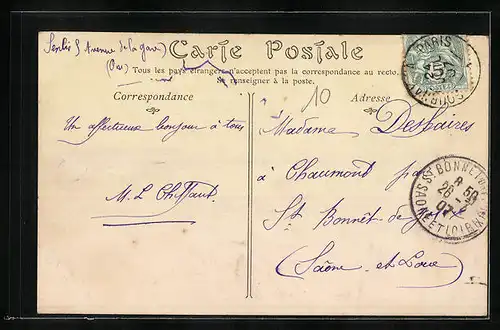 Senlis 5 Avenue de la gare
(Oise)
Carte Postale
Tous les pays étrangers n'acceptent pas la correspondance au recto.
Se renseigner à la poste.
Correspondance
Adresse
10
Un affectueux bonjour à tous
M. L.
Madame Desbaires
à Chaumont par
St Bonnet-de-Joux
(Saône-et-Loire
PARIS
ST BONNET
SAONE ET LOIRE